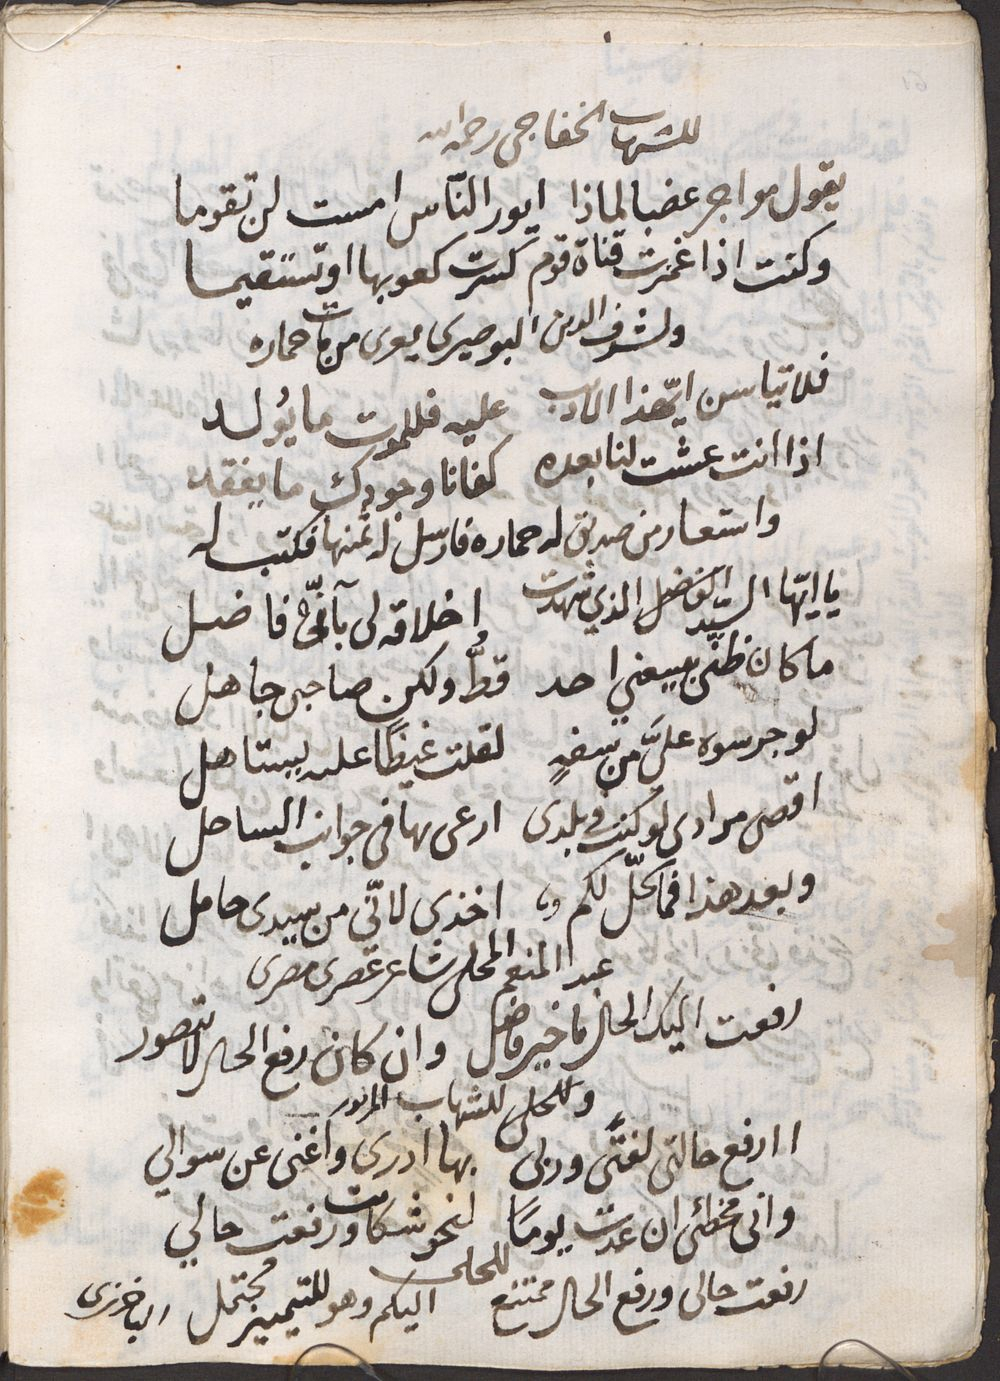 للشهاب الخفاجي رحمه الله
يقول مواجر غضبا لماذا ايور النّاس امست لن تقوما
وكنت اذا غمزت قناة قوم كسرت كعوبها او تستقيما
ولشرف الدين البوصيري يعزى من مات حماره
فلا تياسن ايّهذا الاديب عليه فللموت ما يُولد
اذا انت عشت لنا بعده كفانا وجودك ما يفقد
واستعار من صديق له حماره فارسل له ثمنها فكتب له
يا ايّها السيّد الفاضل الذي شهدت اخلاقه لى بأنّه فاضل
ما كان ظنّى يبيعنى احد قطُّ ولكن صاحبى جاهل
لو جرسوه علىَّ من سفهٍ لقلت غيظًا عليه يستاهل
اقصى مرادى لو كنت فى بلدى ارعى بها فى جوانب الساحل
وبعد هذا فما يحلّ لكم اخذى لانّى من سيدى حامل
عبد المنعم المحلى شاعر عصرى مصرى
رفعت اليك الحال يا خير فاضل وان كان رفع الحال لا يتصور
وللمحلى للشهاب المزبور
اارفع حالتى لفتًى وربى بها ادرى واغنى عن سوالي
وانى مخطئ ان عدت يومًا لنحو شكاية ورفعت حالي
للحلى
رفعت حالى ورفع الحال ممتنع اليكم وهو للتمييز محتمل الباخرزى